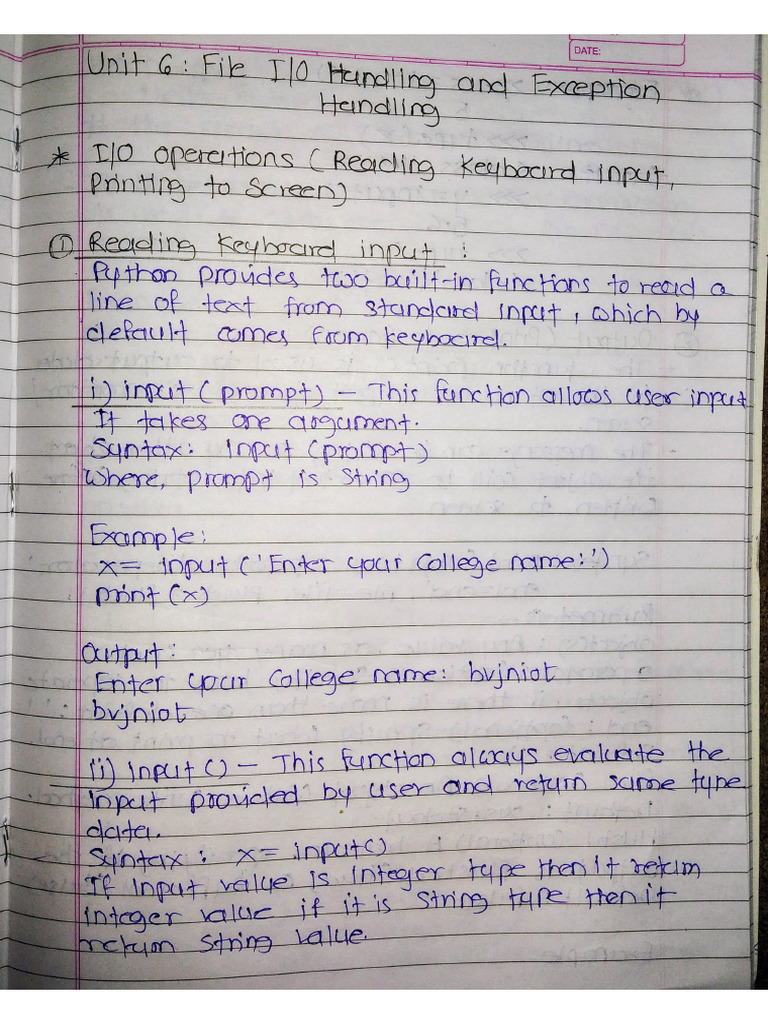 DATE:
Unit 6: File I/O Handling and Exception
Handling
* I/O operations (Reading keyboard input,
Printing to Screen)
① Reading keyboard input :
Python provides two built-in functions to read a
line of text from standard input, which by
default comes from keyboard.
i) input (prompt) - This function allows user input
It takes one argument.
Syntax: input (prompt)
Where, prompt is String
Example:
x = input ('Enter your College name:')
print (x)
Output:
Enter your College name: bvjniot
bvjniot
ii) input () - This function always evaluate the
input provided by user and return same type
data.
Syntax : x = input()
If input value is integer type then it return
integer value if it is string type then it
return string value.